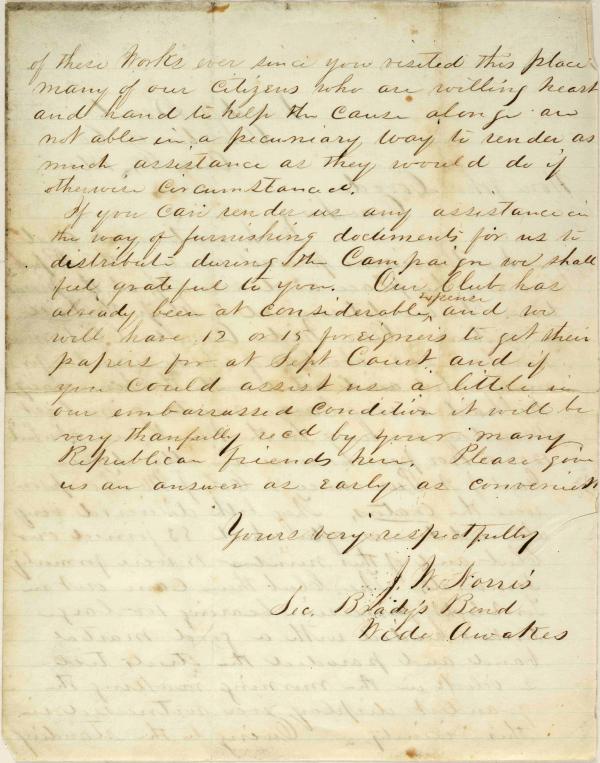 of these Works ever since you visited this place
many of our Citizens who are willing heart
and hand to help the cause alonge are
not able in a pecuniary way to render as
much assistance as they would do if
otherwise circumstanced.
If you can render us any assistance in
the way of furnishing documents for us to
distribute during the Campaign we shall
feel grateful to you. Our Club has
already been at considerable expense and we
will have 12 or 15 foreigners to get their
papers for at Sept Court and if
you could assist us a little in
our embarrassed condition it will be
very thanfully recd by your many
Republican friends here. Please give
us an answer as early as convenient
Yours very respectfully
J. W. Norris
Sec. Brady's Bend
Wide Awakes